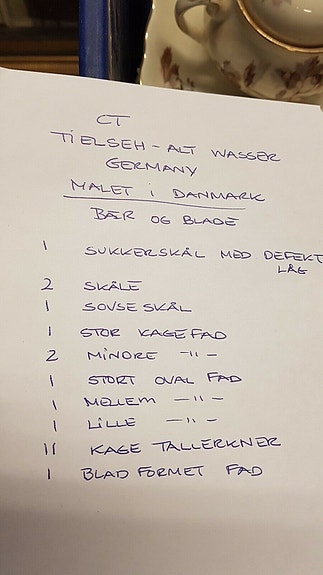 CT
TIELSEH - ALT WASSER
GERMANY
MALET I DANMARK
BÆR OG BLADE
1 SUKKERSKÅL MED DEFEKT
LÅG
2 SKÅLE
1 SOVSESKÅL
1 STOR KAGEFAD
2 MINDRE -"-
1 STORT OVAL FAD
1 MELLEM -"-
1 LILLE -"-
11 KAGE TALLERKNER
1 BLAD FORMET FAD